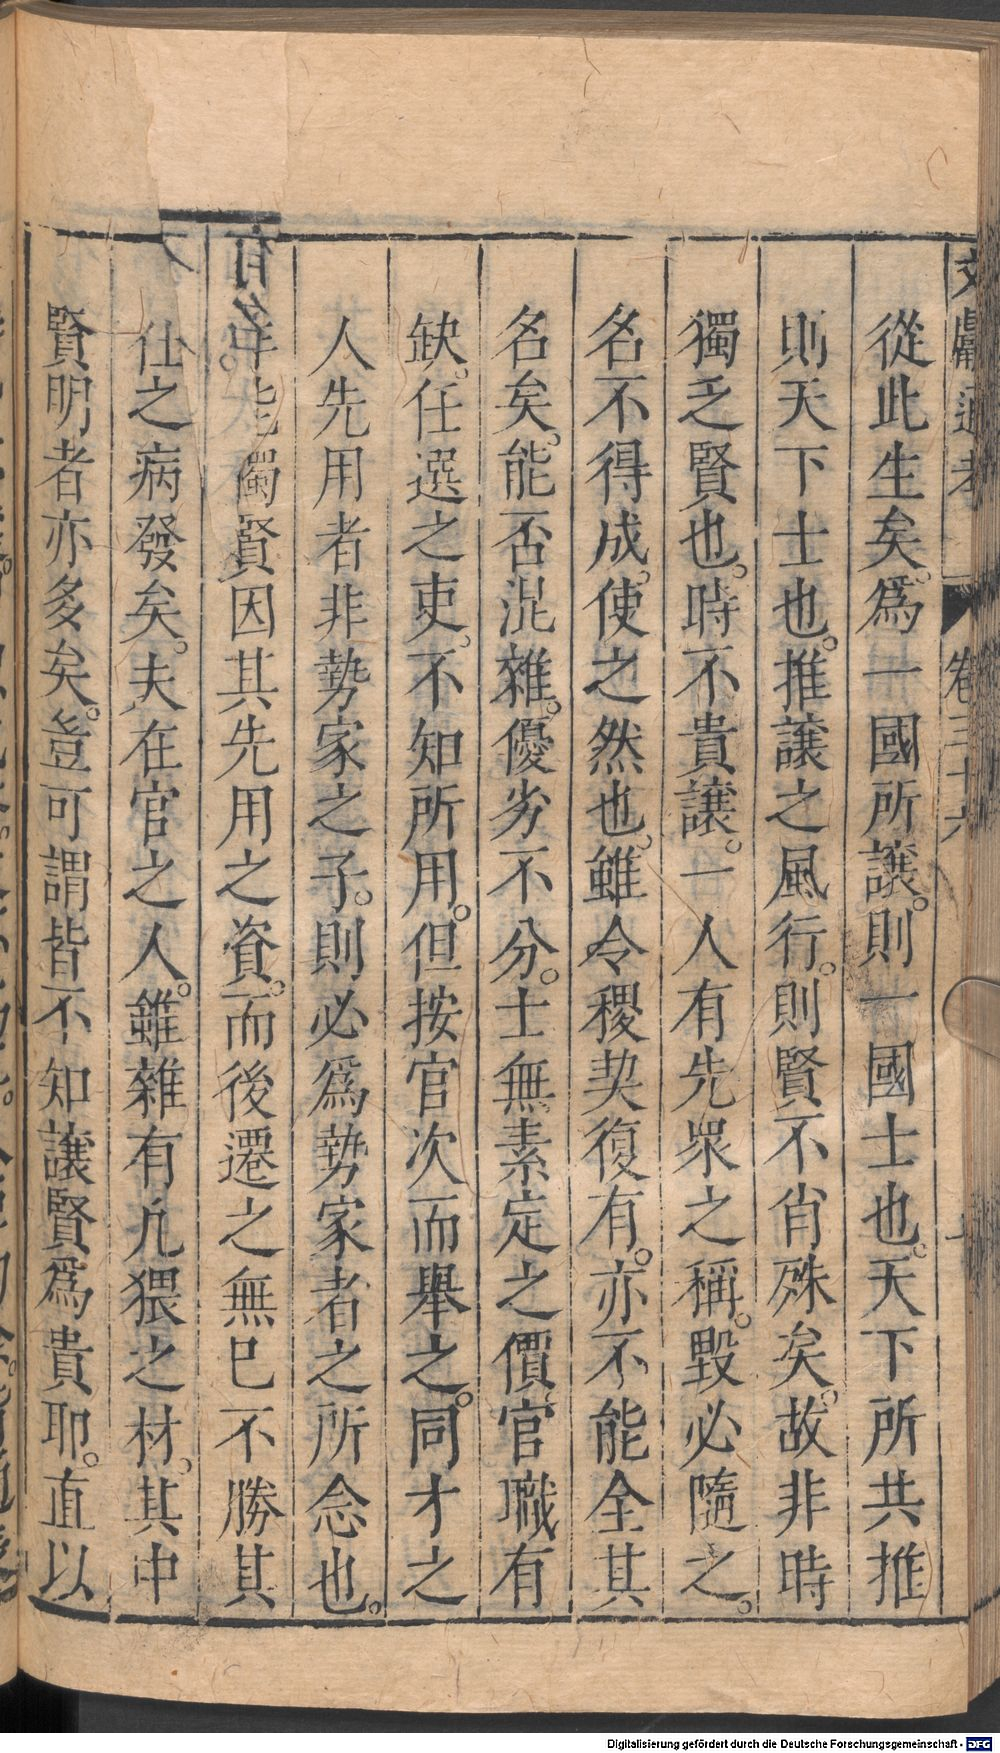 文獻通考 卷三十六
從此生矣。爲一國所讓。則一國士也。天下所共推
則天下士也。推讓之風行。則賢不肖殊矣。故非時
獨乏賢也。時不貴讓。一人有先衆之稱。毀必隨之。
名不得成。使之然也。雖令稷契復有。亦不能全其
名矣。能否混雜。優劣不分。士無素定之價。官職有
缺。任選之吏。不知所用。但按官次而舉之。同才之
人先用者非勢家之子。則必爲勢家者之所念也。
能獨賢因其先用之資。而後遷之無已不勝其
仕之病發矣。夫在官之人。雖雜有凢猥之材。其中
賢明者亦多矣。豈可謂皆不知讓賢爲貴耶。直以
Digitalisierung gefördert durch die Deutsche Forschungsgemeinschaft - DFG